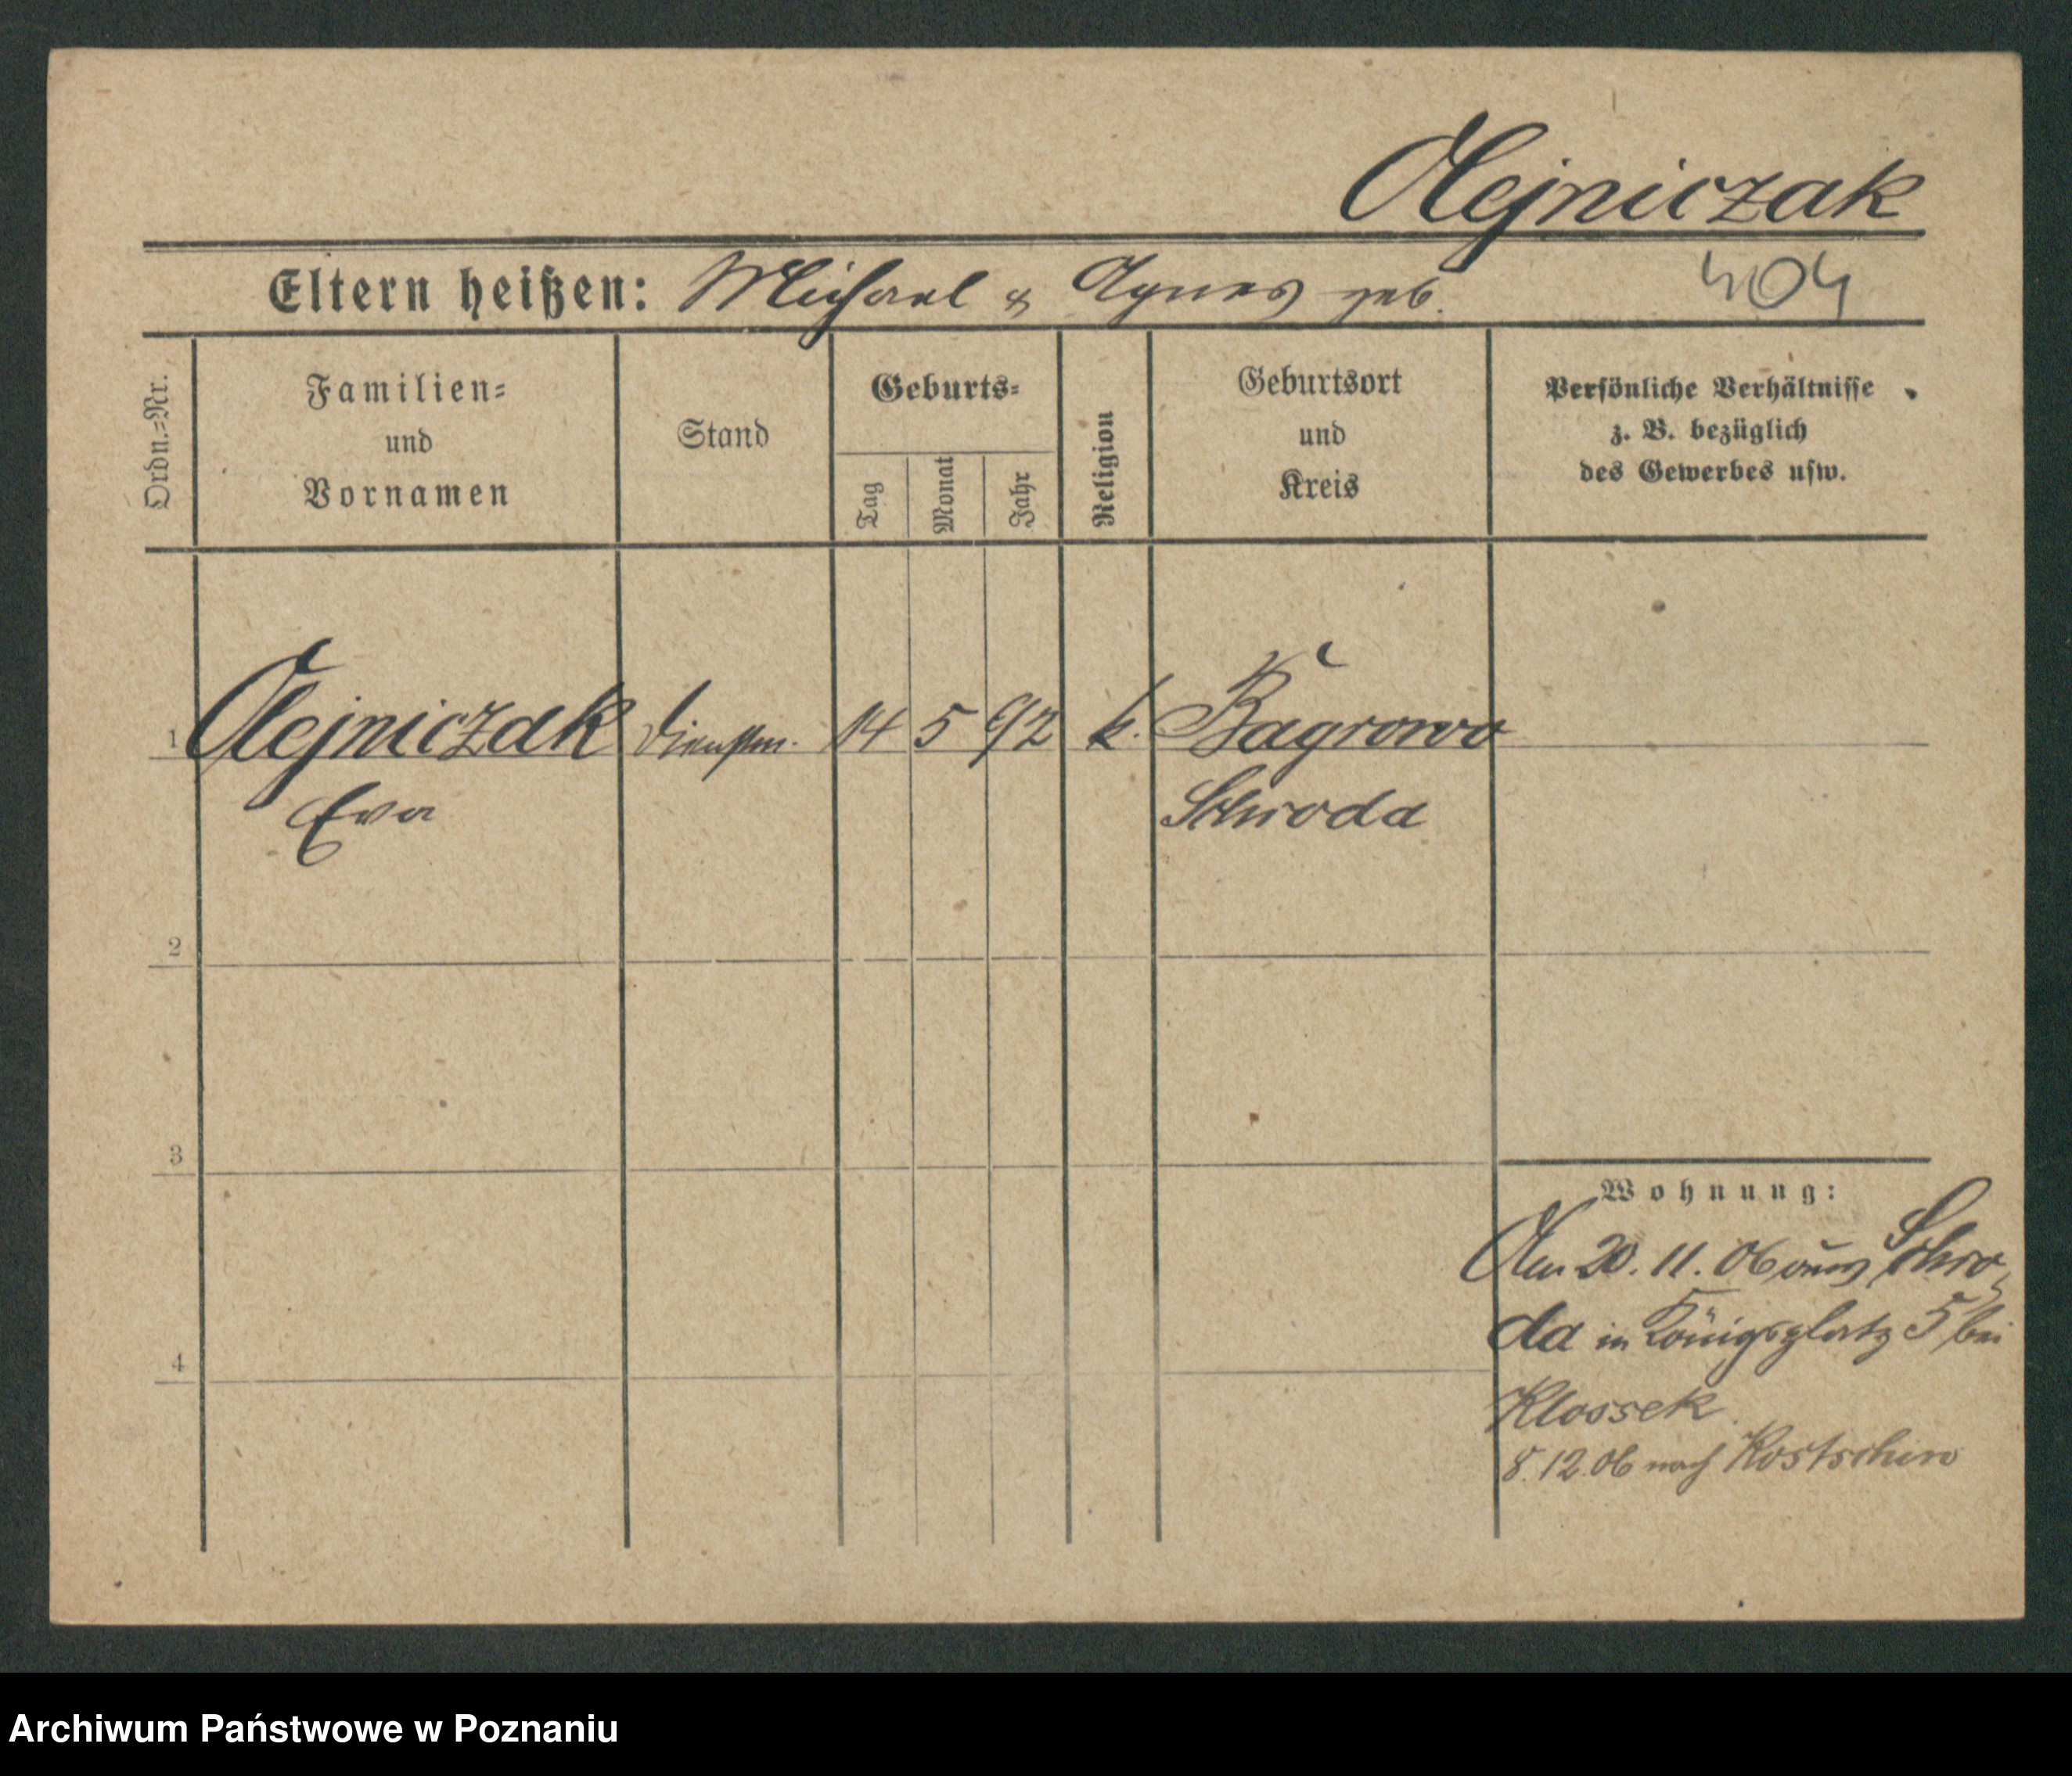 Olejniczak
Eltern heißen: Michael & Agnes geb.
404
Ordn.-Nr.
Familien-
und
Vornamen
Stand
Geburts-
Tag
Monat
Jahr
Religion
Geburtsort
und
Kreis
Persönliche Verhältnisse
z. B. bezüglich
des Gewerbes usw.
1 Olejniczak Dienstm. 14 5 92 k. Bagrowo
Eva Schroda
2
3
Wohnung:
Am 20. 11. 06 aus Schro-
da in Königsplatz 5 bei
4
Klossek
8. 12. 06 nach Kostschin
Archiwum Państwowe w Poznaniu